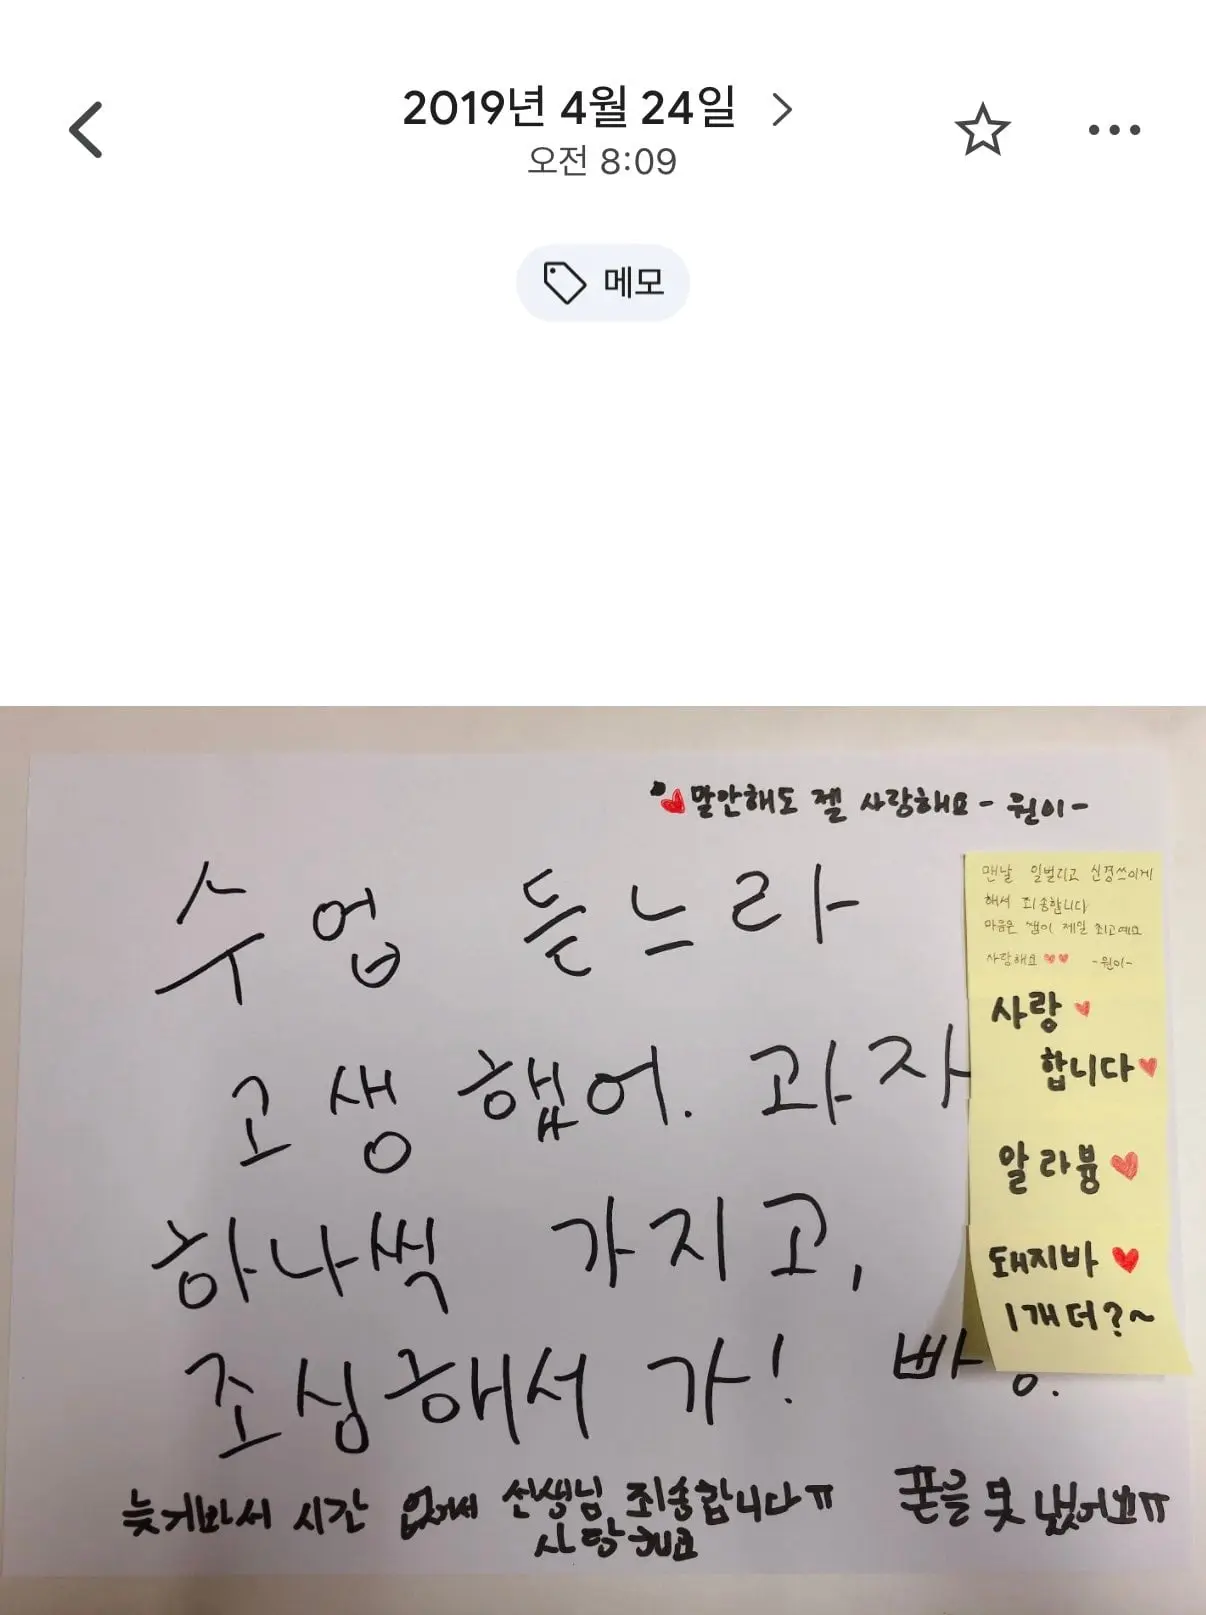 2019년 4월 24일
오전 8:09
메모
말안해도 젤 사랑해요 - 원이 -
수업 듣느라
고생했어. 과자
하나씩 가지고,
조심해서 가! 빵.
맨날 일벌리고 신경쓰이게
해서 죄송합니다
마음은 쌤이 제일 최고예요
사랑해요 -원이-
사랑
합니다
알라븅
돼지바
1개 더?~
늦게봐서 시간 없어서 선생님 죄송합니다ㅠ 폰을 못 냈어요ㅠ
사랑해요